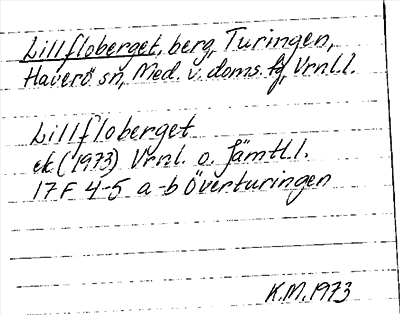 Lillfloberget, berg, Turingen,
Haverö sn, Med. v. doms. fg, Vrnl.l.
Lillfloberget
ek (1973) Vrnl. o. Jämtl.l.
17 F 4-5 a-b Överturingen
K.M. 1973